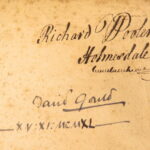 Richard Pooler
Holmesdale
David Gould
XV·XI·MCMXL